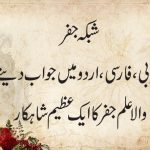 شبکہ جفر
بی، فارسی، اردو میں جواب دینے
والا علم جفر کا ایک عظیم شاہکار